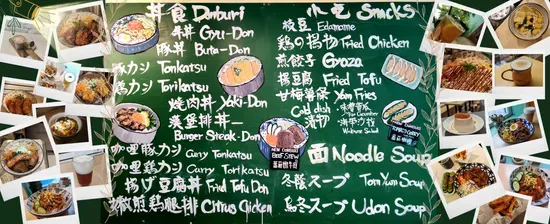 丼食 Donburi
牛丼 Gyu-Don
豚丼 Buta-Don
豚カシ Tonkatsu
鶏カシ Torikatsu
焼肉丼 Yaki-Don
漢堡排丼
Burger Steak-Don
咖哩豚カシ Curry Tonkatsu
咖哩鶏カシ Curry Torikatsu
揚げ豆腐丼 Fried Tofu Don
椒煎鶏腿排 Citrus Chicken
小吃 Snacks
枝豆 Edamame
鶏の揚物 Fried Chicken
煎餃子 Gyoza
揚豆腐 Fried Tofu
甘梅薯条 Yam Fries
Cold dish
漬物
味噌青瓜
Cucumber
海帯沙拉
Wakame Salad
BEEF STEW
面 Noodle Soup
冬陰スープ Tom Yum Soup
烏冬スープ Udon Soup